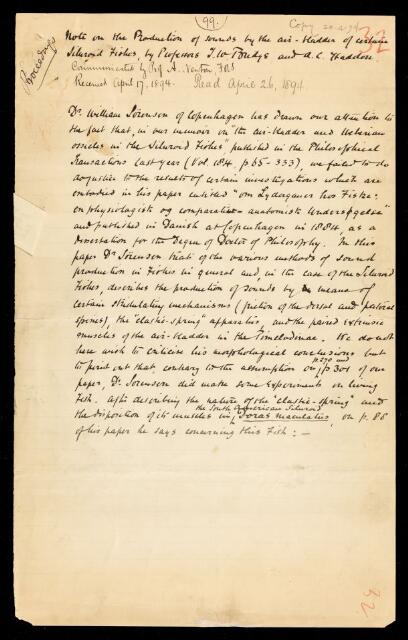 99.
Copy
32
Proceedings
Note on the Production of sounds by the air-bladder of certain
Siluroid Fishes, by Professors T. W. Bridge and A. C. Haddon.
Communicated by Prof A. Newton FRS
Received April 17, 1894. Read April 26, 1894
Dr. William Sörensen of Copenhagen has drawn our attention to
the fact that, in our memoir on "the air-bladder and Weberian
ossicles in the Siluroid Fishes", published in the Philosophical
Transactions last year (Vol. 184, p 65-333), we failed to do
justice to the results of certain investigations which are
embodied in his paper entitled "om Lydorganer hos Fiske:
en physiologisk og comparativ-anatomisk Undersøgelse"
and published in Danish at Copenhagen in 1884, as a
dissertation for the Degree of Doctor of Philosophy. In this
paper Dr Sörensen treats of the various methods of sound
production in Fishes in general and, in the case of the Siluroid
Fishes, describes the production of sounds by means of
certain stridulating mechanisms (friction of the dorsal and pectoral
spines), the "elastic-spring" apparatus, and the paired extrinsic
muscles of the air-bladder in the Pimelodinae. We do not
here wish to criticise his morphological conclusions but
to point out that, contrary to the assumption on p 270 and p 301 of our
paper, Dr. Sörensen did make some experiments on living
Fish. After describing the nature of the "elastic-spring" and
the disposition of its muscles in the South American Siluroid Doras maculatus, on p. 86
of his paper he says concerning this Fish: —
32.